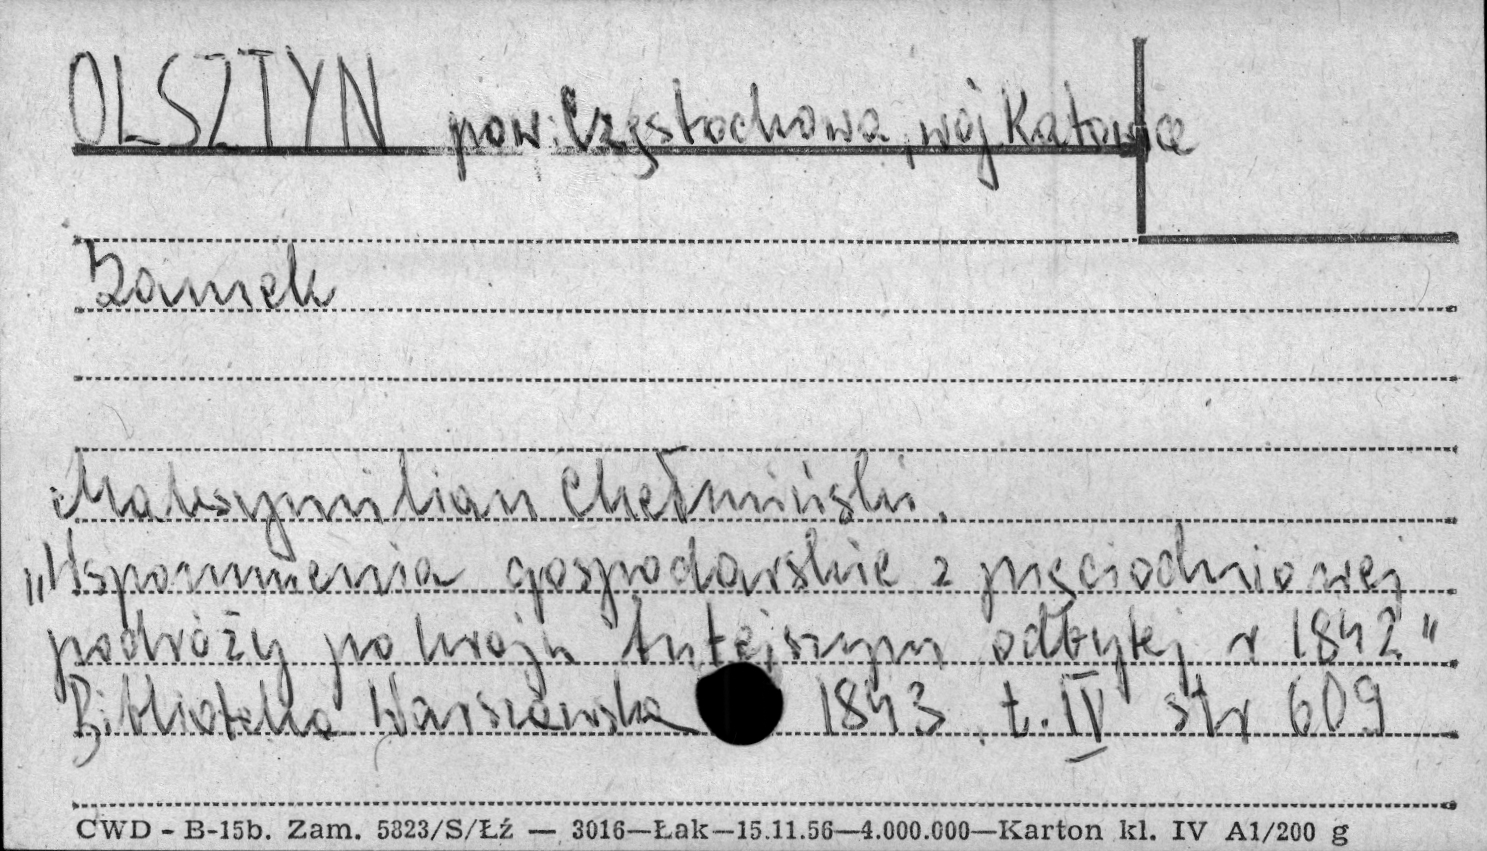 OLSZTYN pow. Częstochowa, woj Katowice
Zamek
Maksymilian Chełmiński.
"Wspomnienia gospodarskie z pięciodniowej
podróży po kraju tutejszym odbytej r 1842"
Biblioteka Warszawska 1843 t. IV str 609
CWD - B-15b. Zam. 5823/S/Łź — 3016—Łak—15.11.56—4.000.000—Karton kl. IV A1/200 g